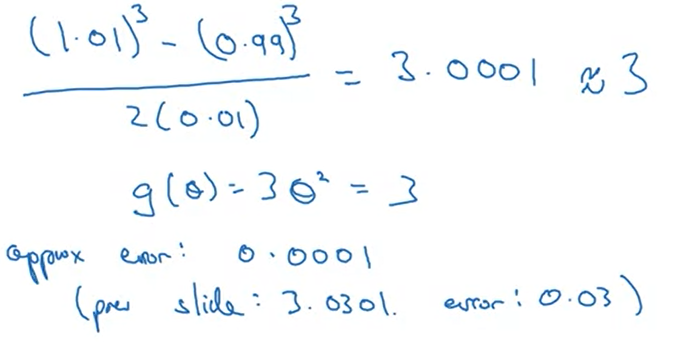 (1.01)³ - (0.99)³
2(0.01)
= 3.0001 ≈ 3
g(θ) = 3θ² = 3
approx error: 0.0001
(prev slide: 3.0301. error: 0.03)